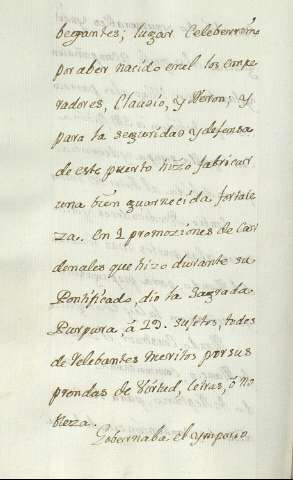 begantes; lugar Celeberrimo
por aber nacido en el los empe
radores, Claudio, y Neron; y
para la seguridad y defensa
de este puerto hizo fabricar
una bien guarnecida fortale
za. en 2 promoziones de Car
denales que hizo durante su
Pontificado, dio la Sagrada
Purpura, á 19. sujetos, todos
de relebantes meritos por sus
prendas de Virtud, letras, ó no
bleza.
Gobernaba el ymperio